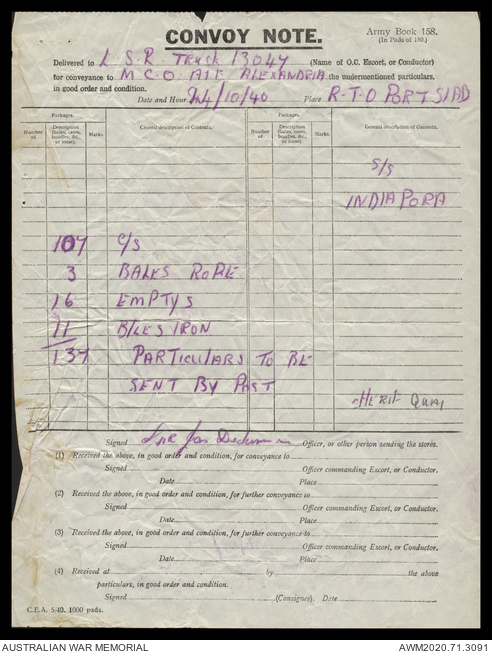 CONVOY NOTE.
Army Book 158.
(In Pads of 150.)
Delivered to L S.R. Truck 13047 (Name of O.C. Escort, or Conductor)
for conveyance to M.C.O. AIF ALEXANDRIA the undermentioned particulars,
in good order and condition.
Date and Hour 24/10/40 Place R.T.O PORT SIAD
Packages. Packages.
Number of Description (bales, cases, bundles, &c., or loose). Marks. General description of Contents. Number of Description (bales, cases, bundles, &c., or loose). Marks. General description of Contents.
S/S
INDIAPORA
107 C/S
3 BALES ROPE
16 EMPTYS
11 B/LES IRON
137 PARTICULARS TO BE
SENT BY POST
QUAI
Signed Officer, or other person sending the stores.
(1) Received the above, in good order and condition, for conveyance to
Signed Officer commanding Escort, or Conductor.
Date Place
(2) Received the above, in good order and condition, for further conveyance to
Signed Officer commanding Escort, or Conductor.
Date Place
(3) Received the above, in good order and condition, for further conveyance to
Signed Officer commanding Escort, or Conductor.
Date Place
(4) Received at by the above
particulars, in good order and condition.
Signed (Consignee). Date
C.E.A. 5/40. 1000 pads.
AUSTRALIAN WAR MEMORIAL AWM2020.71.3091